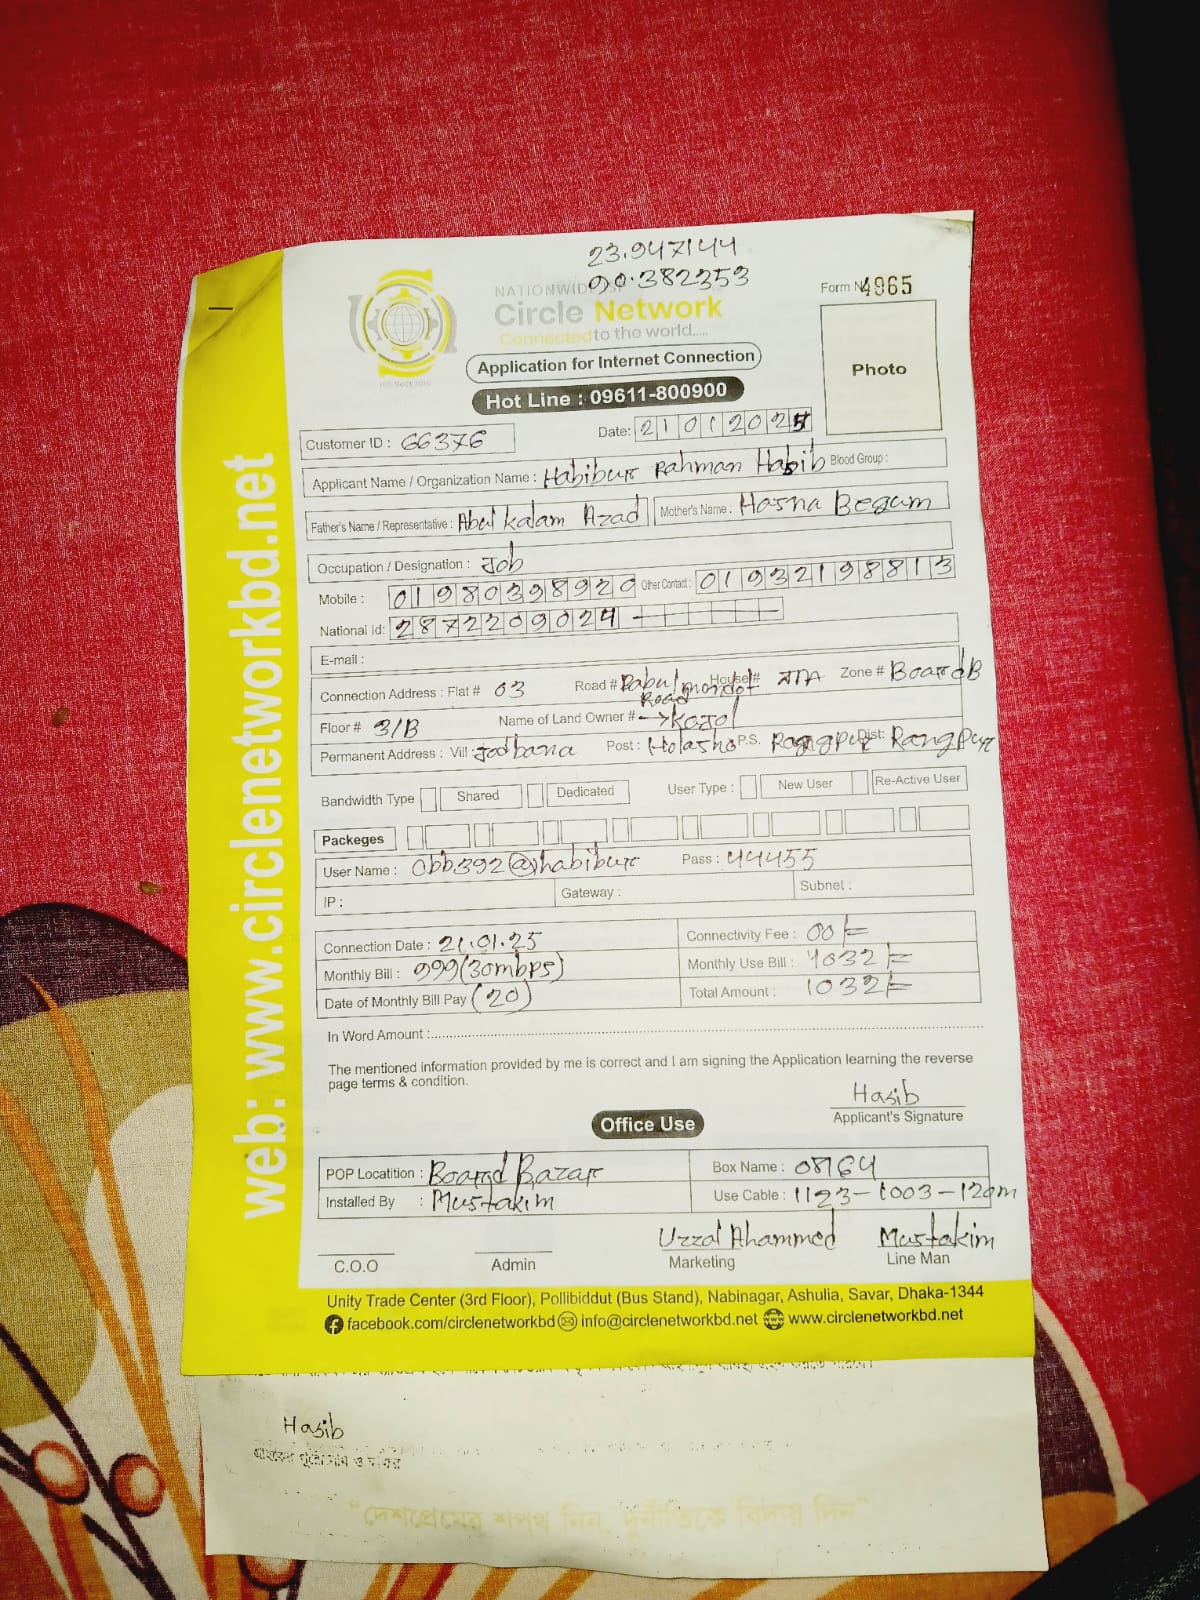 23.947144
90.382353
NATIONWIDE ISP
Circle Network
Connected to the world.....
Form N 4965
Application for Internet Connection
Photo
Hot Line : 09611-800900
Customer ID : 66376
Date: 21012025
Applicant Name / Organization Name : Habibur Rahman Habib Blood Group :
Father's Name / Representative : Abul Kalam Azad Mother's Name : Hasna Begum
Occupation / Designation : Job
Mobile : 01980398920 Other Contact : 01932198813
National Id: 2872209024
E-mail :
Connection Address : Flat # 03 Road # Babul mondol Road House# Zone # Board B
Floor # 3/B Name of Land Owner # → Kajol
Permanent Address : Vill Jodbana Post : Holasho P.S. Rangpur Dist: Rangpur
Bandwidth Type Shared Dedicated User Type : New User Re-Active User
Packeges
User Name : Obb392@habibur Pass : 44455
IP : Gateway : Subnet :
Connection Date : 21.01.25 Connectivity Fee : 00/=
Monthly Bill : 999 (30mbps) Monthly Use Bill : 1032/=
Date of Monthly Bill Pay (20) Total Amount : 1032/=
In Word Amount :
The mentioned information provided by me is correct and I am signing the Application learning the reverse
page terms & condition.
Hasib
Applicant's Signature
Office Use
POP Locatition : Board Bazar Box Name : 08164
Installed By : Mustakim Use Cable : 1123-1003-120m
Uzzal Ahammed Mustakim
C.O.O Admin Marketing Line Man
Unity Trade Center (3rd Floor), Pollibiddut (Bus Stand), Nabinagar, Ashulia, Savar, Dhaka-1344
facebook.com/circlenetworkbd info@circlenetworkbd.net www.circlenetworkbd.net
web: www.circlenetworkbd.net
Hasib
"দেশপ্রেমের শপথ নিন, দুর্নীতিকে বিদায় দিন"